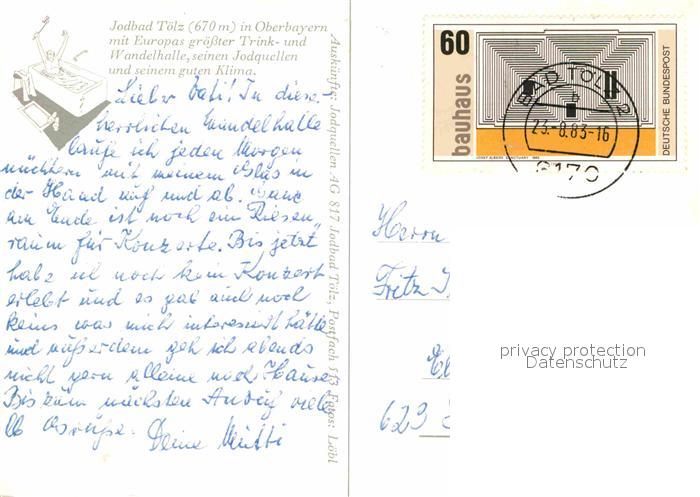 Jodbad Tölz (670 m) in Oberbayern
mit Europas größter Trink- und
Wandelhalle, seinen Jodquellen
und seinem guten Klima.
Lieber Vati! In diese
herrlichen Wandelhalle
laufe ich jeden Morgen
nüchtern mit meinem Glas in
der Hand auf und ab. Ganz
am Ende ist noch ein Riesen
raum für Konzerte. Bis jetzt
habe ich noch kein Konzert
erlebt und es gab auch noch
keins was mich interessiert hätte
und außerdem geh ich abends
nicht gern alleine nach Hause
Bis zum nächsten Anruf viele
lb Deine Mutti
Auskünfte: Jodquellen AG 817 Jodbad Tölz, Postfach Fotos: Löbl
60
bauhaus
DEUTSCHE BUNDESPOST
JOSEF ALBERS SANCTUARY 1942
BAD TÖLZ 2
b
23.-8.83-16
8170
Herrn
Fritz
623
privacy protection
Datenschutz